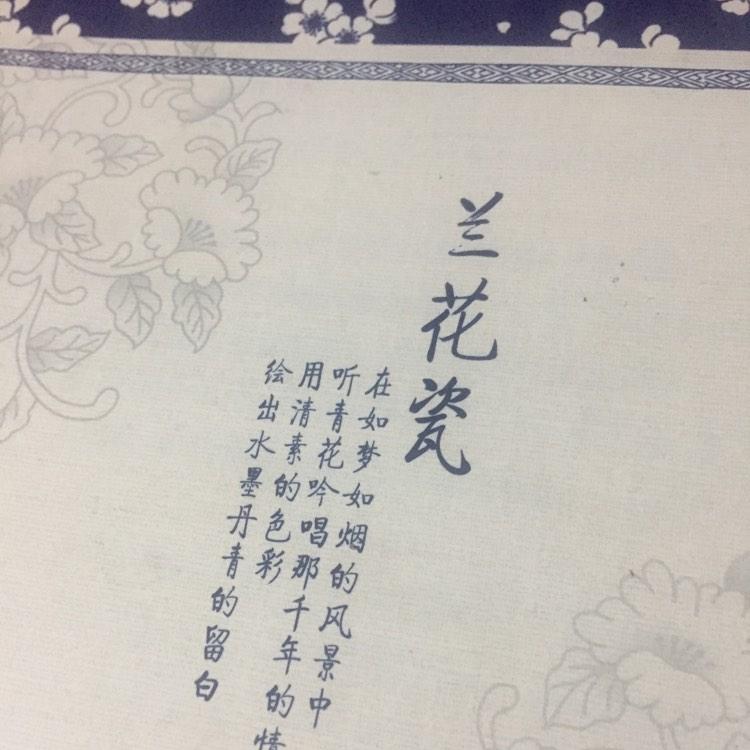 兰花瓷
在如梦如烟的风景中
听青花吟唱那千年的情
用清素的色彩
绘出水墨丹青的留白